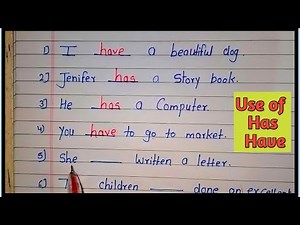 1) I have a beautiful dog.
2] Jenifer has a Story book.
3] He has a Computer.
4) You have to go to market.
5) She ____ written a letter.
children ____ done an excellent
Use of
Has
Have